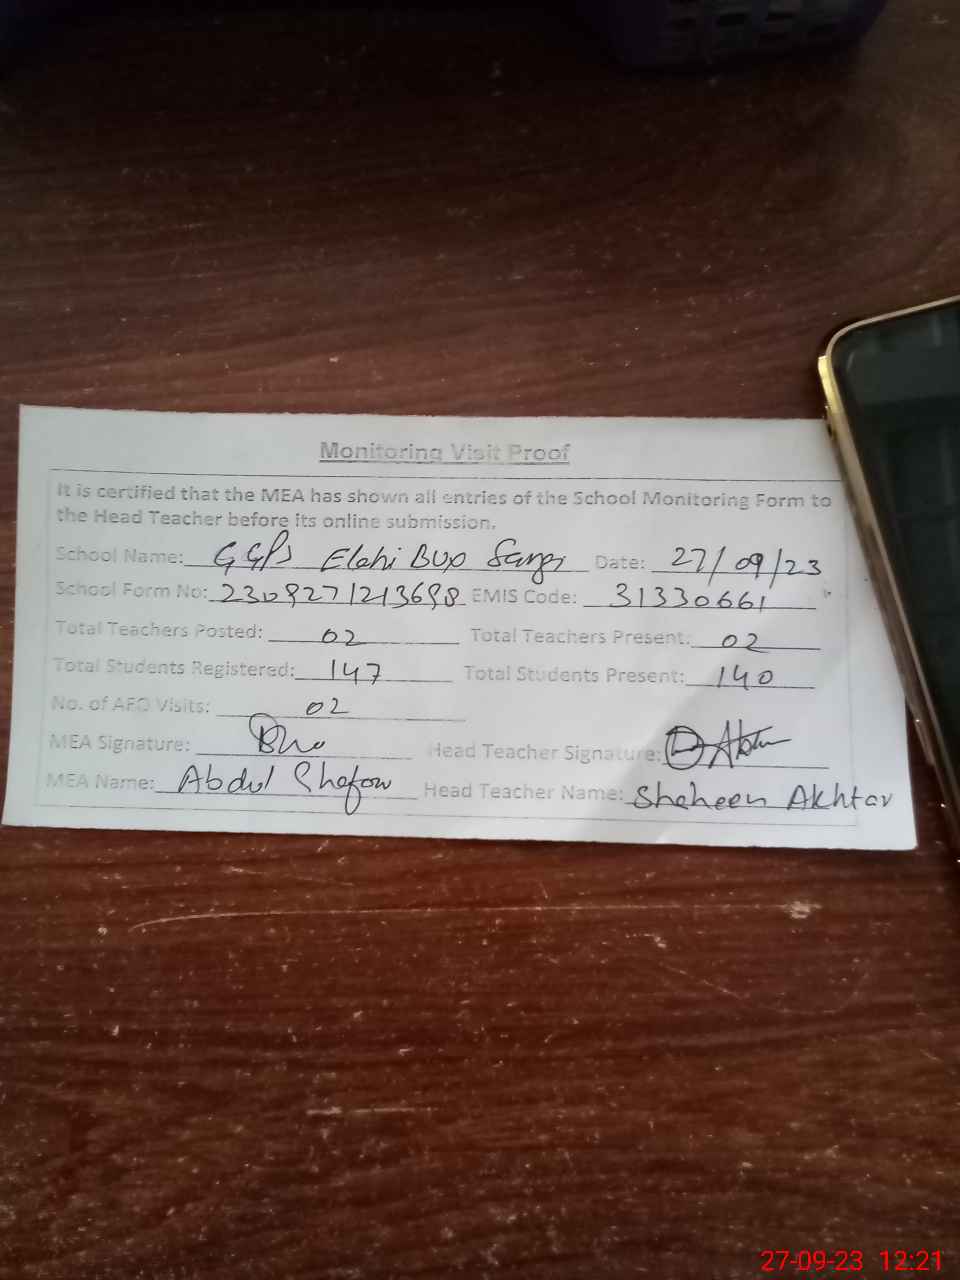 Monitoring Visit Proof
It is certified that the MEA has shown all entries of the School Monitoring Form to
the Head Teacher before its online submission.
School Name: GGPS Elahi Bux Date: 27/09/23
School Form No: 2309271213698 EMIS Code: 31330661
Total Teachers Posted: 02 Total Teachers Present: 02
Total Students Registered: 147 Total Students Present: 140
No. of AEO Visits: 02
MEA Signature: Head Teacher Signature:
MEA Name: Abdul Ghafoor Head Teacher Name: Shaheen Akhtar
27-09-23 12:21